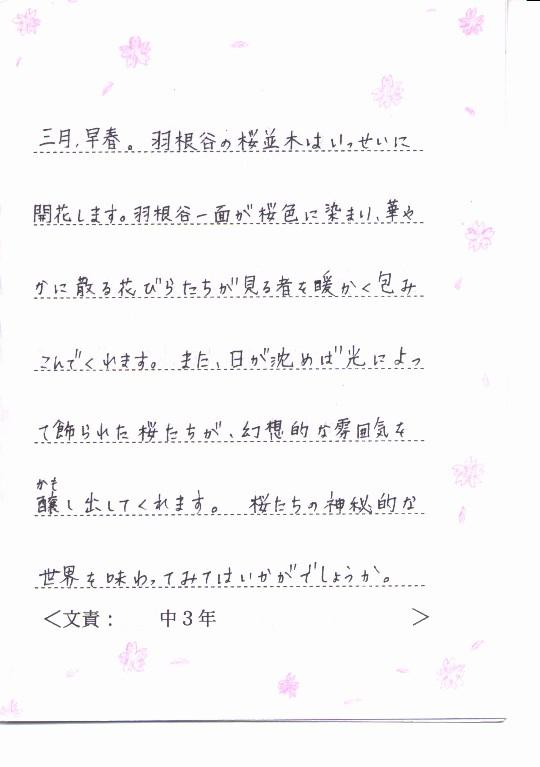 三月、早春。羽根谷の桜並木はいっせいに
開花します。羽根谷一面が桜色に染まり、華や
かに散る花びらたちが見る者を暖かく包み
こんでくれます。また、日が沈めば光によっ
て飾られた桜たちが、幻想的な雰囲気を
かも
醸し出してくれます。 桜たちの神秘的な
世界を味わってみてはいかがでしょうか。
＜文責： 中３年 ＞